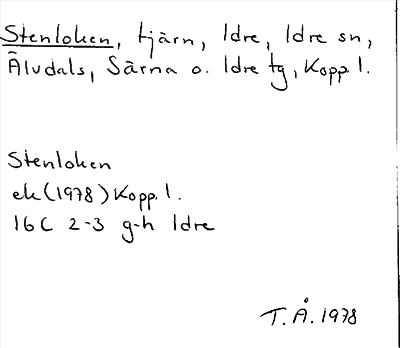 Stenloken, tjärn, Idre, Idre sn,
Älvdals, Särna o. Idre tg, Kopp. l.
Stenloken
ek (1978) Kopp. l.
16C 2-3 g-h Idre
T.Å. 1978